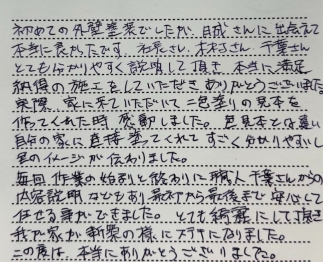 初めての外壁塗装でしたが、日成さんに出会えて
本当に良かったです。社長さん、村さん、千葉さん
とても分かりやすく説明して頂き 本当に満足
納得の施工をしていただき ありがとうございました
実際、家に来ていただいて二色塗りの見本を
作ってくれた時 感動しました。色見本とは違い
自分の家に直接塗ってくれて すごく分かりやすいし
色のイメージが伝わりました。
毎回 作業の始まりと終わりに 職人 千葉さんからの
内容説明などもあり 最初から最後まで 安心して
任せる事ができました。とても綺麗にして頂き
我が家が新築の様にステキになりました。
この度は、本当にありがとうございました。